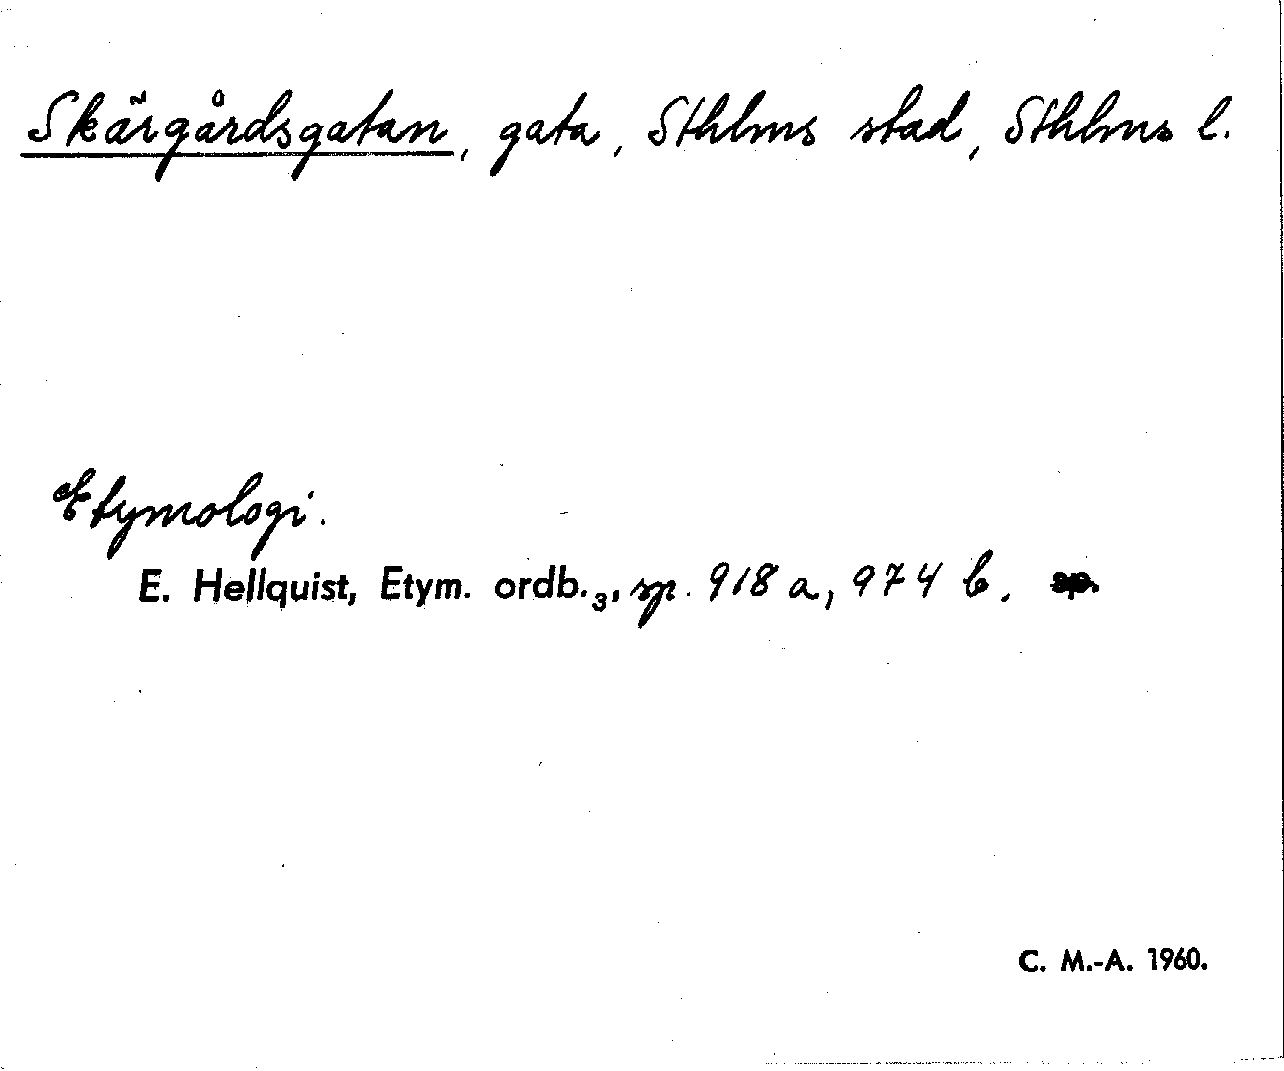 Skärgårdsgatan, gata, Sthlms stad, Sthlms l.
Etymologi.
E. Hellquist, Etym. ordb.₃, sp. 918 a, 974 b. sp.
C. M.-A. 1960.